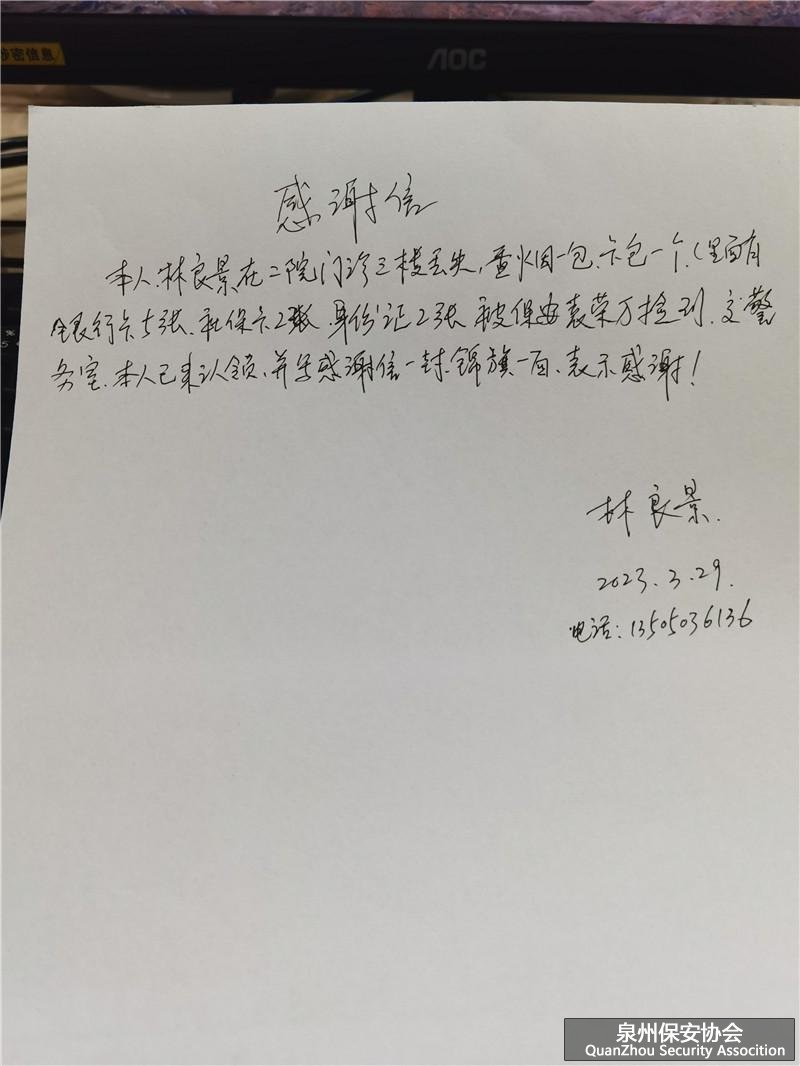 涉密信息
AOC
感谢信
本人林良景在二院门诊三楼丢失,香烟一包、卡包一个、(里面有
银行卡5张、社保卡2张、身份证2张 被保安袁荣万捡到、交警
务室、本人已来认领、并写感谢信一封、锦旗一面、表示感谢!
林良景.
2023.3.29.
电话:13505036136
泉州保安协会
QuanZhou Security Assocition